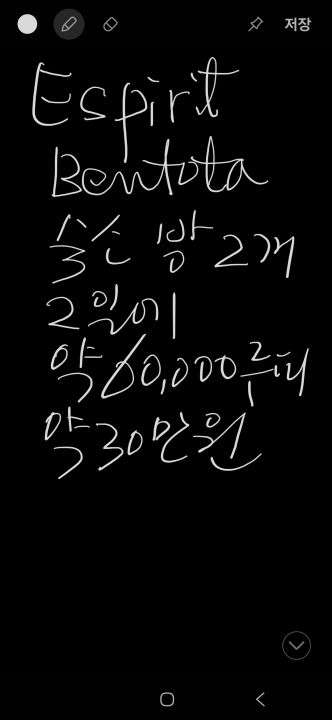 저장
Espirit
Bentota
숙소 방 2개
2일에
약 60,000루피
약 30만원